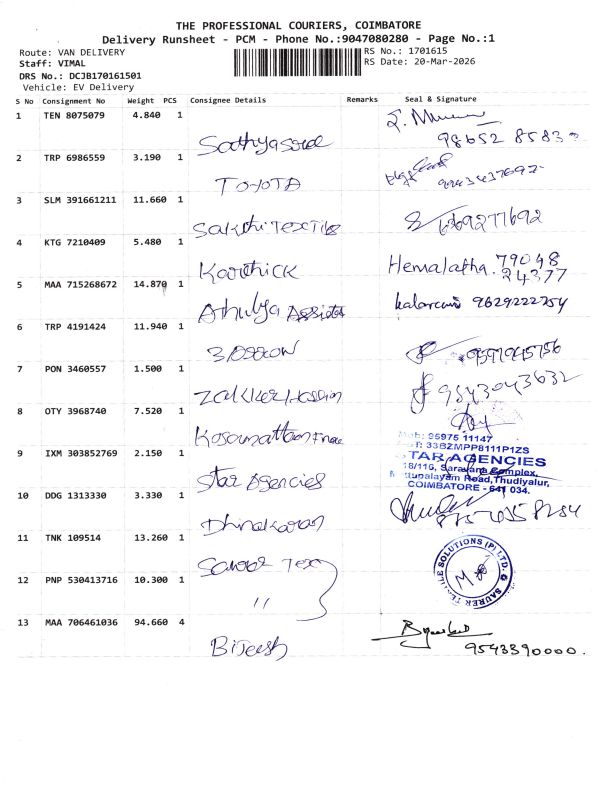 THE PROFESSIONAL COURIERS, COIMBATORE
Delivery Runsheet - PCM - Phone No.:9047080280 - Page No.:1
Route: VAN DELIVERY
RS No.: 1701615
Staff: VIMAL
RS Date: 20-Mar-2026
DRS No.: DCJB170161501
Vehicle: EV Delivery
S No Consignment No Weight PCS Consignee Details Remarks Seal & Signature
1 TEN 8075079 4.840 1
2 TRP 6986559 3.190 1
TOYOTA
3 SLM 391661211 11.660 1
Sakthi Textiles
4 KTG 7210409 5.480 1
Karthick Hemalatha. 79048 24377
5 MAA 715268672 14.870 1
Athulya 9629222754
6 TRP 4191424 11.940 1
7 PON 3460557 1.500 1
9543043632
8 OTY 3968740 7.520 1
Mob: 95975 11147
33BZMPP8111P1ZS
9 IXM 303852769 2.150 1
Star Agencies
STAR AGENCIES
18/116, Saravana Complex,
Mettupalayam Road, Thudiyalur,
COIMBATORE - 641 034.
10 DDG 1313330 3.330 1
Dhinakaran
11 TNK 109514 13.260 1
12 PNP 530413716 10.300 1
"
SAURER TEXTILE SOLUTIONS (P) LTD.
13 MAA 706461036 94.660 4
Bijeesh
9543390000.